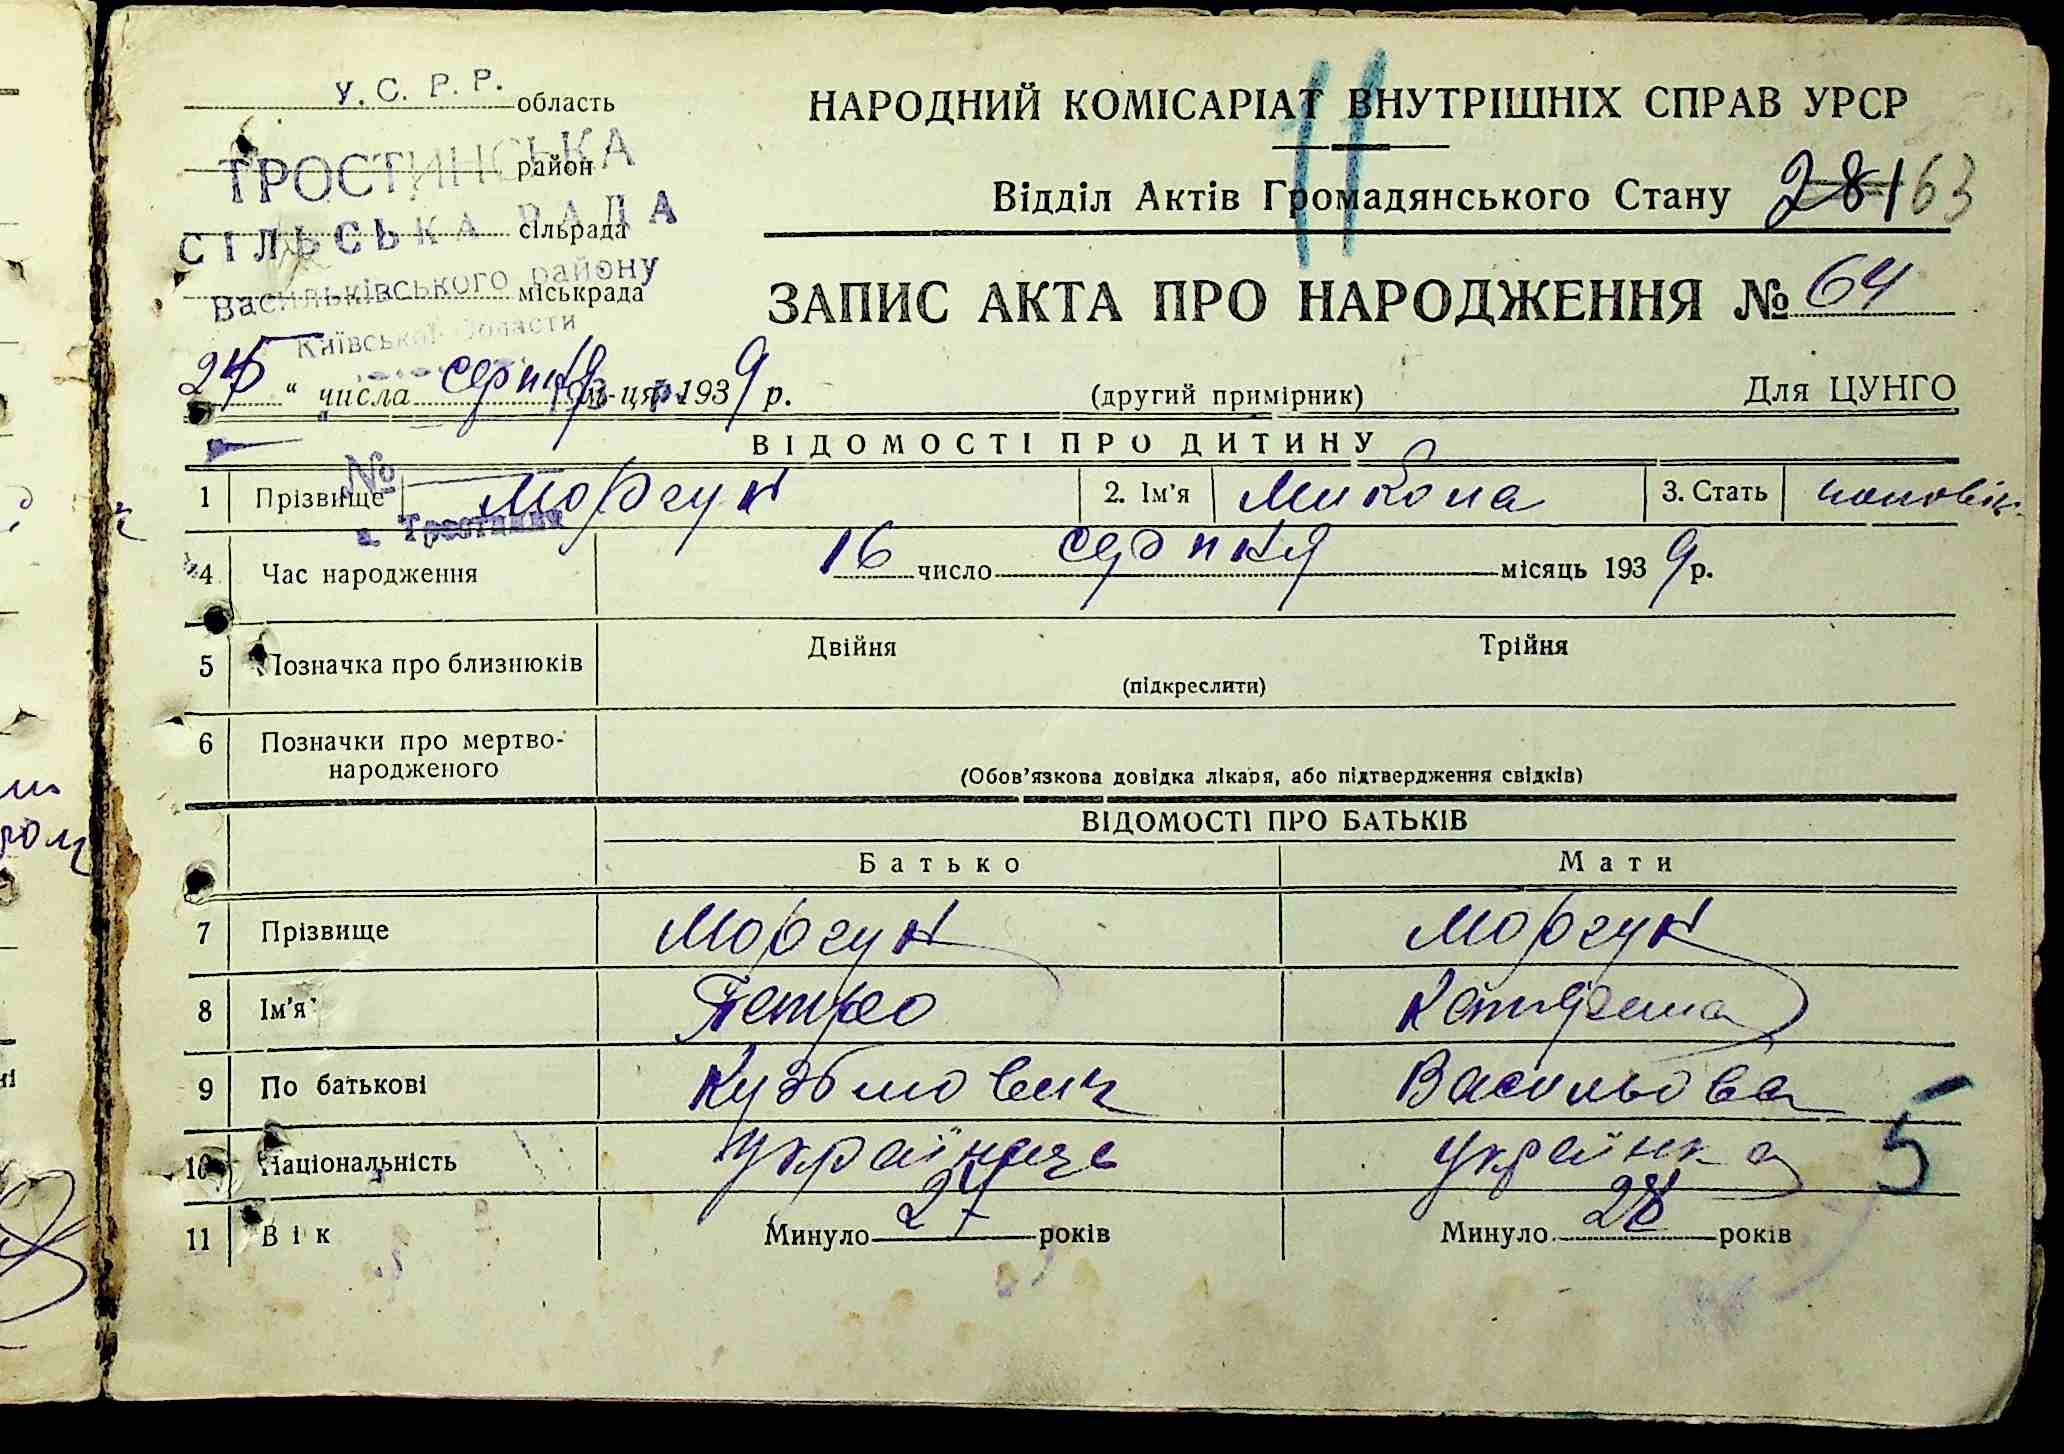 У. С. Р. Р. область
НАРОДНИЙ КОМІСАРІАТ ВНУТРІШНІХ СПРАВ УРСР
11
ТРОСТИНСЬКА район
Відділ Актів Громадянського Стану 281 63
СІЛЬСЬКА РАДА сільрада
Васильківського району міськрада
ЗАПИС АКТА ПРО НАРОДЖЕННЯ № 64
Київської області
25 " числа серпня м-ця 1939 р. (другий примірник) Для ЦУНГО
ВІДОМОСТІ ПРО ДИТИНУ
№
1 Прізвище Моргун 2. Ім'я Микола 3. Стать
с. Тростинка
4 Час народження 16 число серпня місяць 1939 р.
5 Позначка про близнюків Двійня Трійня
(підкреслити)
6 Позначки про мертво-
народженого
(Обов'язкова довідка лікаря, або підтвердження свідків)
ВІДОМОСТІ ПРО БАТЬКІВ
Батько Мати
7 Прізвище Моргун Моргун
8 Ім'я Петро
9 По батькові Кузьмович Васильовна
10 Національність українець українка 5
11 Вік Минуло 27 років Минуло 28 років